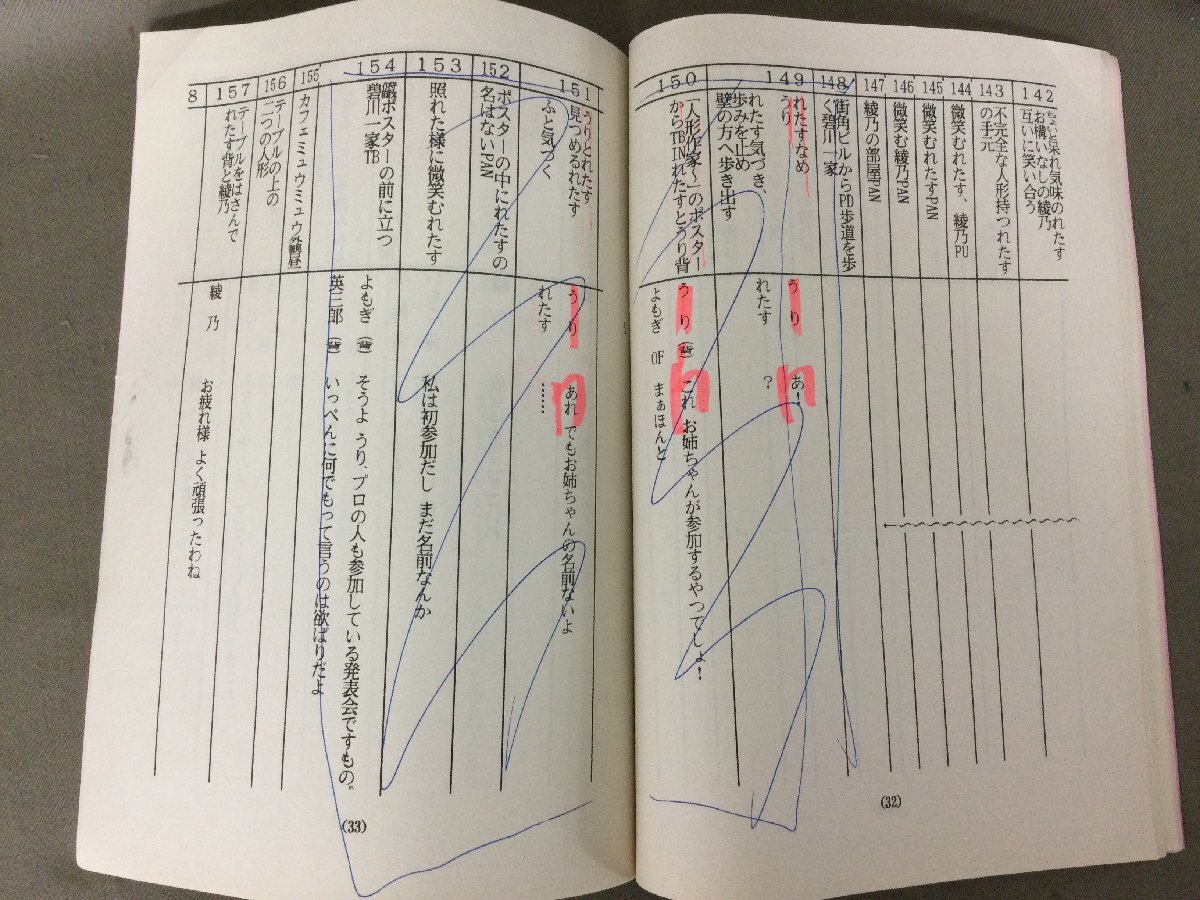 142
ちょいと呆れ気味のれたす
お構いなしの綾乃
互いに笑い合う
143
不完全な人形持つれたす
の手元
144
微笑むれたす、綾乃PU
145
微笑むれたすPAN
146
微笑む綾乃PAN
147
綾乃の部屋PAN
148
街角ビルからPD歩道を歩
く碧川一家
149
れたすなめ
うり
うり あ!
れたす ?
れたす気づき、
歩みを止め
壁の方へ歩き出す
150
「人形作家~」のポスター
からTBINれたすとうり背
うり(背) これ お姉ちゃんが参加するやつでしょ!
よもぎ OF まぁほんと
(32)
151
うりとれたす
見つめるれたす
ふと気づく
うり あれ でもお姉ちゃんの名前ないよ
れたす ……
152
ポスターの中にれたすの
名はないPAN
153
照れた様に微笑むれたす
私は初参加だし まだ名前なんか
154
ポスターの前に立つ
碧川一家TB
よもぎ(背) そうよ うり、プロの人も参加している発表会ですもの。
英三郎(背) いっぺんに何でもって言うのは欲ばりだよ
155
カフェミュウミュウ外観昼
156
テーブルの上の
二つの人形
157
テーブルをはさんで
れたす背と綾乃
綾乃 お疲れ様 よく頑張ったわね
8
(33)